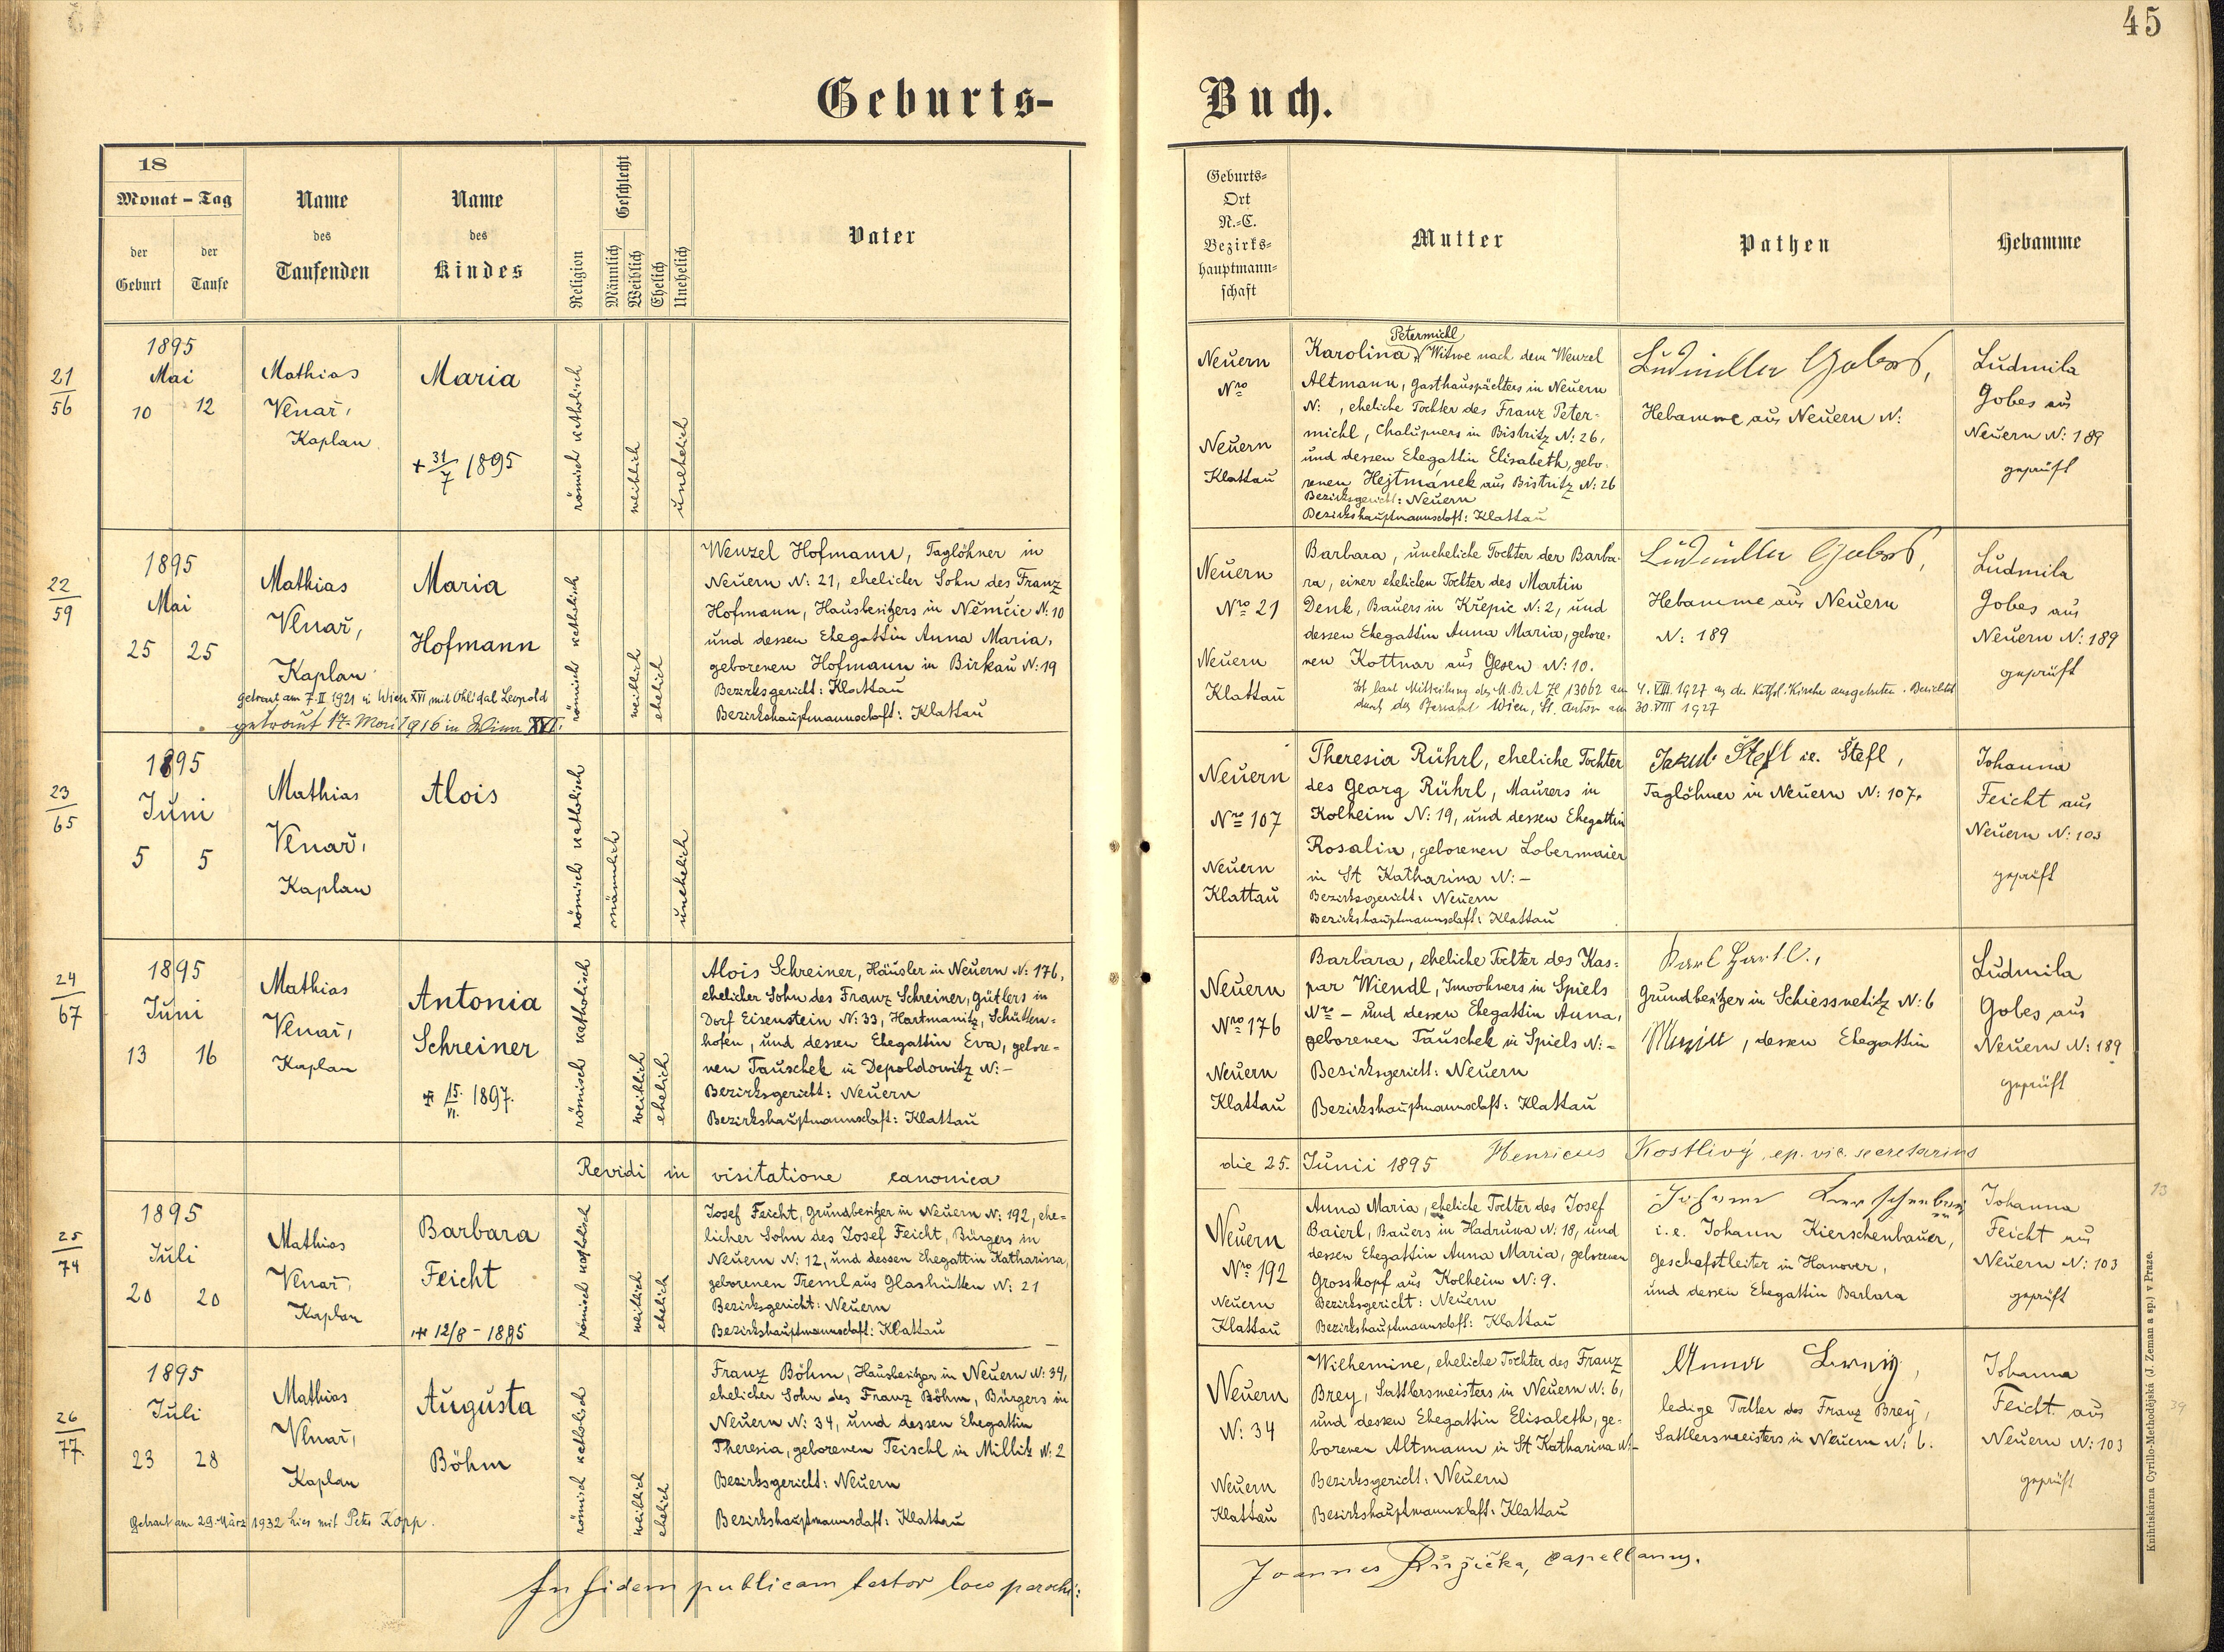 45
Geburts-
Buch.
18
Monat - Tag
der
Geburt
der
Taufe
Name
des
Taufenden
Name
des
Kindes
Religion
Geschlecht
Männlich
Weiblich
Ehelich
Unehelich
Vater
Geburts-
Ort
N.-C.
Bezirks-
hauptmann-
schaft
Mutter
Pathen
Hebamme
21
56
1895
Mai
10 12
Mathias
Venař,
Kaplan
Maria
+ 31/7 1895
römisch katholisch
weiblich
unehelich
Neuern
Nro
Neuern
Klattau
Petermichl
Karolina, Witwe nach dem Wenzel
Altmann, Gasthauspächters in Neuern
N: , eheliche Tochter des Franz Peter-
michl, Chalupners in Bistritz N: 26,
und dessen Ehegattin Elisabeth, gebo-
renen Hejtmánek aus Bistritz N: 26
Bezirksgericht: Neuern
Bezirkshauptmannschaft: Klattau
Ludmilla Gobes,
Hebamme aus Neuern N:
Ludmila
Gobes aus
Neuern N: 189
geprüft
22
59
1895
Mai
25 25
Mathias
Venař,
Kaplan
Maria
Hofmann
getraut am 7. II 1921 in Wien XVI mit Ohlidal Leopold
getraut 17. Mai 1916 in Wien XVI.
römisch katholisch
weiblich
ehelich
Wenzel Hofmann, Taglöhner in
Neuern N: 21, ehelicher Sohn des Franz
Hofmann, Hausbesitzers in Němčic N: 10
und dessen Ehegattin Anna Maria,
geborenen Hofmann in Birkau N: 19
Bezirksgericht: Klattau
Bezirkshauptmannschaft: Klattau
Neuern
Nro 21
Neuern
Klattau
Barbara, uneheliche Tochter der Barba-
ra, einer ehelichen Tochter des Martin
Denk, Bauers in Křepic N: 2, und
dessen Ehegattin Anna Maria, gebore-
nen Kottnar aus Gesen N: 10.
Ludmilla Gobes,
Hebamme aus Neuern
N: 189
Ist laut Mitteilung des M. B. A Zl 13062 am 4. VIII. 1927 aus der kathol. Kirche ausgetreten. Berichtet
durch das Pfarramt Wien, St. Anton am 30. VIII 1927
Ludmila
Gobes aus
Neuern N: 189
geprüft
23
65
1895
Juni
5 5
Mathias
Venař,
Kaplan
Alois
römisch katholisch
männlich
unehelich
Neuern
Nro 107
Neuern
Klattau
Theresia Rührl, eheliche Tochter
des Georg Rührl, Maurers in
Kolheim N: 19, und dessen Ehegattin
Rosalia, geborenen Lobermaier
in St Katharina N: -
Bezirksgericht: Neuern
Bezirkshauptmannschaft: Klattau
Jakub Štefl i.e. Štefl,
Taglöhner in Neuern N: 107.
Johanna
Feicht aus
Neuern N: 103
geprüft
24
67
1895
Juni
13 16
Mathias
Venař,
Kaplan
Antonia
Schreiner
15. VI. 1897.
römisch katholisch
weiblich
ehelich
Alois Schreiner, Häusler in Neuern N: 176,
ehelicher Sohn des Franz Schreiner, Gütlers in
Dorf Eisenstein N: 33, Hartmanitz, Schütten-
hofen, und dessen Ehegattin Eva, gebore-
nen Tauschek in Depoldowitz N: -
Bezirksgericht: Neuern
Bezirkshauptmannschaft: Klattau
Neuern
Nro 176
Neuern
Klattau
Barbara, eheliche Tochter des Kas-
par Wiendl, Inwohners in Spiels
Nro - und dessen Ehegattin Anna,
geborenen Tauschek in Spiels N: -
Bezirksgericht: Neuern
Bezirkshauptmannschaft: Klattau
Karl Hartl.,
Grundbesitzer in Schiessnetitz N: 6
, dessen Ehegattin
Ludmila
Gobes aus
Neuern N: 189
geprüft
Revidi in visitatione canonica
die 25. Junii 1895 Henricus Kostlivý, ep. vic. secretarius
25
74
1895
Juli
20 20
Mathias
Venař,
Kaplan
Barbara
Feicht
12/8 - 1895
römisch katholisch
weiblich
ehelich
Josef Feicht, Grundbesitzer in Neuern N: 192, ehe-
licher Sohn des Josef Feicht, Bürgers in
Neuern N: 12, und dessen Ehegattin Katharina,
geborenen Treml aus Glashütten N: 21
Bezirksgericht: Neuern
Bezirkshauptmannschaft: Klattau
Neuern
Nro 192
Neuern
Klattau
Anna Maria, eheliche Tochter des Josef
Baierl, Bauers in Hadruwa N: 18, und
dessen Ehegattin Anna Maria, geborenen
Grosskopf aus Kolheim N: 9.
Bezirksgericht: Neuern
Bezirkshauptmannschaft: Klattau
Johann
i.e. Johann Kierschenbauer,
Geschäftleiter in Hanover,
und dessen Ehegattin Barbara
Johanna
Feicht aus
Neuern N: 103
geprüft
26
77.
1895
Juli
23 28
Mathias
Venař,
Kaplan
Augusta
Böhm
Getraut am 29. März 1932 hier mit Peter Kopp.
römisch katholisch
weiblich
ehelich
Franz Böhm, Hausbesitzer in Neuern N: 34,
ehelicher Sohn des Franz Böhm, Bürgers in
Neuern N: 34, und dessen Ehegattin
Theresia, geborenen Teischl in Millik N: 2
Bezirksgericht: Neuern
Bezirkshauptmannschaft: Klattau
Neuern
N: 34
Neuern
Klattau
Wilhemine, eheliche Tochter des Franz
Brey, Sattlersmeisters in Neuern N: 6,
und dessen Ehegattin Elisabeth, ge-
borenen Altmann in St Katharina N: -
Bezirksgericht: Neuern
Bezirkshauptmannschaft: Klattau
Anna
ledige Tochter des Franz Brey,
Sattlersmeisters in Neuern N: 6.
Johanna
Feicht aus
Neuern N: 103
geprüft
In fidem publicam testor loco parochi:
Joannes Růžička, capellanus.
Knihtiskárna Cyrillo-Methodějská (J. Zeman a sp.) v Praze.